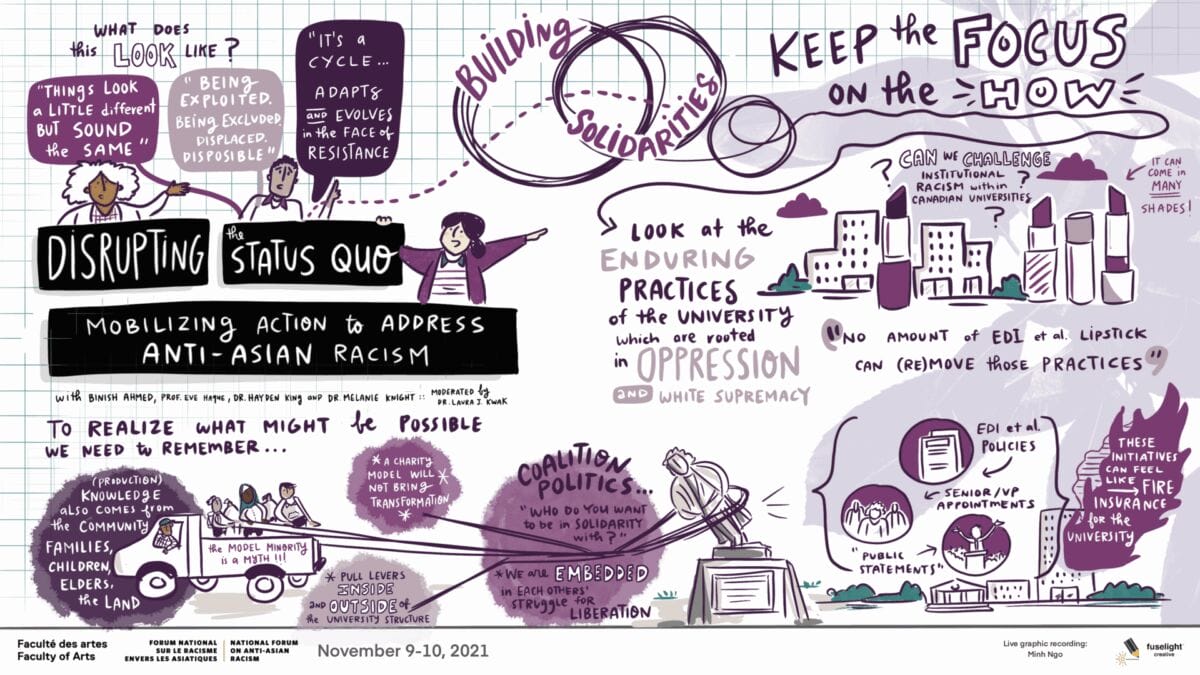 WHAT DOES
this LOOK LIKE?
"THINGS LOOK
a LITTLE different
BUT SOUND
the SAME"
"BEING
EXPLOITED.
BEING EXCLUDED,
DISPLACED.
DISPOSIBLE"
"IT'S A
CYCLE...
ADAPTS
and EVOLVES
in the FACE of
RESISTANCE
BUILDING
SOLIDARITIES
KEEP the FOCUS
ON the HOW
DISRUPTING the STATUS QUO
MOBILIZING ACTION to ADDRESS
ANTI-ASIAN RACISM
with BINISH AHMED, PROF. EVE HAQUE, DR. HAYDEN KING AND DR. MELANIE KNIGHT :: MODERATED by
DR. LAURA J. KWAK
LOOK at the
ENDURING
PRACTICES
of the UNIVERSITY
which are rooted
in OPPRESSION
AND WHITE SUPREMACY
? CAN WE CHALLENGE
INSTITUTIONAL ?
RACISM within
CANADIAN UNIVERSITIES
?
IT CAN
COME in
MANY
SHADES!
"NO AMOUNT of EDI et al. LIPSTICK
CAN (RE)MOVE those PRACTICES"
TO REALIZE WHAT MIGHT be POSSIBLE
WE NEED to REMEMBER...
(PRODUCTION)
KNOWLEDGE
also COMES from
the COMMUNITY
FAMILIES,
CHILDREN,
ELDERS,
the LAND
the MODEL MINORITY
is A MYTH!!!
* A CHARITY
MODEL WILL
NOT BRING *
TRANSFORMATION
*
* PULL LEVERS
INSIDE
and OUTSIDE of
the UNIVERSITY STRUCTURE
COALITION
POLITICS...
"WHO DO YOU WANT
to be in SOLIDARITY
with?"
* WE are EMBEDDED
in EACH OTHERS'
STRUGGLE for
LIBERATION
EDI et al.
POLICIES
SENIOR/VP
APPOINTMENTS
"PUBLIC
STATEMENTS"
THESE
INITIATIVES
CAN FEEL
LIKE FIRE
INSURANCE
for the
UNIVERSITY
Faculté des artes
Faculty of Arts
FORUM NATIONAL
SUR LE RACISME
ENVERS LES ASIATIQUES
NATIONAL FORUM
ON ANTI-ASIAN
RACISM
November 9-10, 2021
Live graphic recording:
Minh Ngo
fuselight
creative